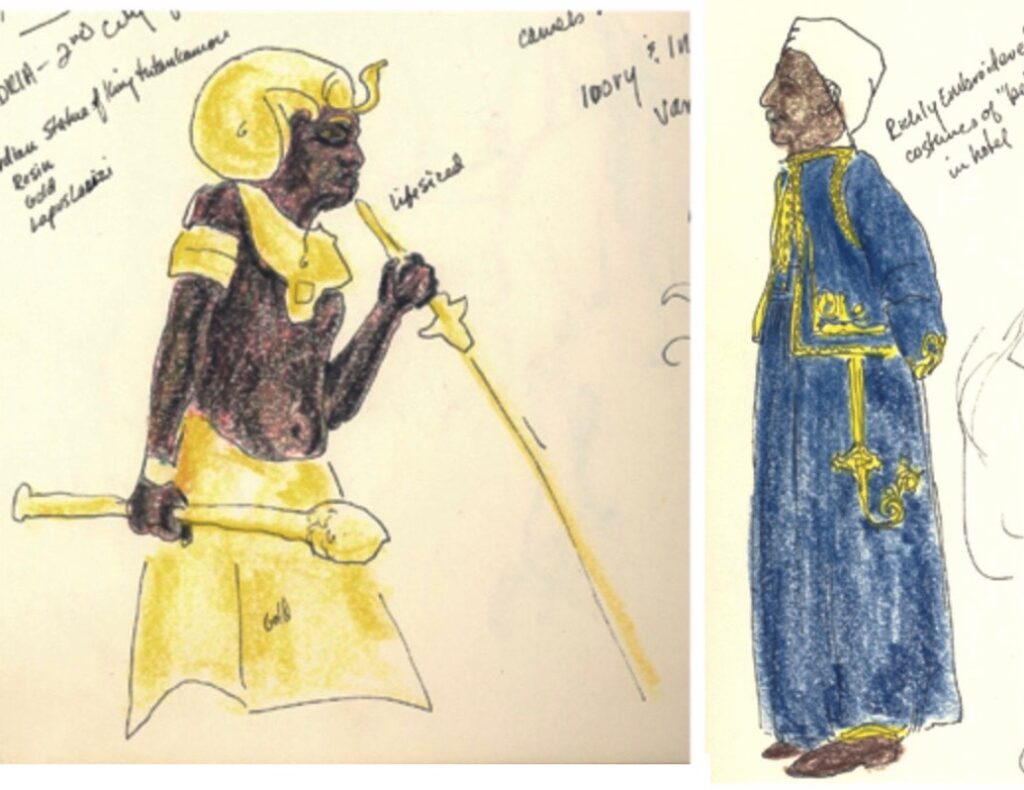 DRIA - 2nd City
Statue of King tutankamon
Resin
Gold
Lapos Lazizi
G
lifesized
G
Gold
camels
Ivory & In
Var
Richly Embroidered
costumes of "be
in hotel